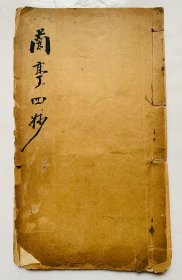 蘭亭四抄